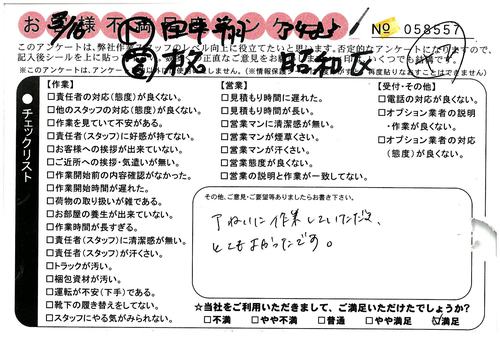 お客様不満足アンケート
No 058557
昭和区
このアンケートは、弊社作業スタッフのレベル向上に役立てたいと思います。否定的なアンケートになりますので、
チェックリスト
【作業】
□責任者の対応(態度)が良くない。
□他のスタッフの対応(態度)が良くない。
□作業を見ていて不安がある。
□責任者(スタッフ)に好感が持てない。
□お客様への挨拶が出来ていない。
□ご近所への挨拶・気遣いが無い。
□作業開始前の内容確認がなかった。
□作業開始時間が遅れた。
□荷物の取り扱いが雑である。
□お部屋の養生が出来ていない。
□作業時間が長すぎる。
□責任者(スタッフ)に清潔感が無い。
□責任者(スタッフ)が汗くさい。
□トラックが汚い。
□梱包資材が汚い。
□運転が不安(下手)である。
□靴下の履き替えをしてない。
□スタッフにやる気がみられない。
【営業】
□見積もり時間に遅れた。
□見積もり時間が長い。
□営業マンに清潔感が無い。
□営業マンが煙草くさい。
□営業マンが汗くさい。
□営業態度が良くない。
□営業の説明と作業が一致してない。
【受付・その他】
□電話の対応が良くない。
□オプション業者の説明
・作業が良くない。
□オプション業者の対応
(態度)が良くない。
その他、ご意見・ご要望等ありましたらお書き下さい。
ていねいに作業していただき、
とてもよかったです。
☆当社をご利用いただきまして、ご満足いただけたでしょうか?
□不満 □やや不満 □普通 □やや満足 ☑満足